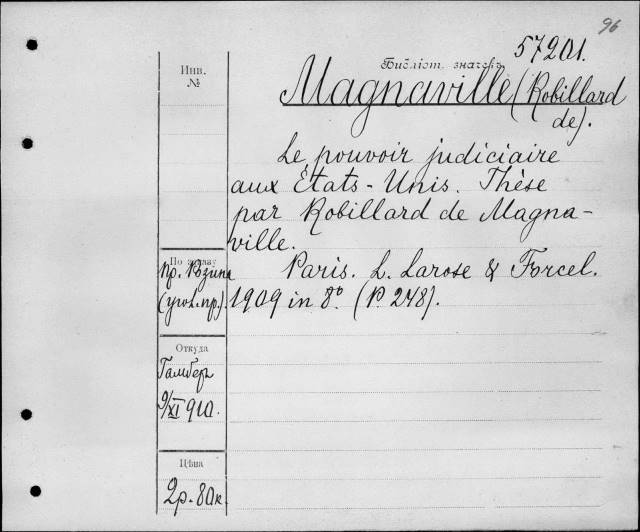 96
57201.
Инв.
№
Библіот. значекъ
Magnaville (Robillard
de).
Le pouvoir judiciaire
aux États-Unis. Thèse
par Robillard de Magna-
ville.
По заказу
пр. Розина
(угол. пр.).
Paris. L. Larose & Forcel.
1909 in 8º (P. 248).
Откуда
Гамбер
9/XI 910.
Цѣна
2р. 80к